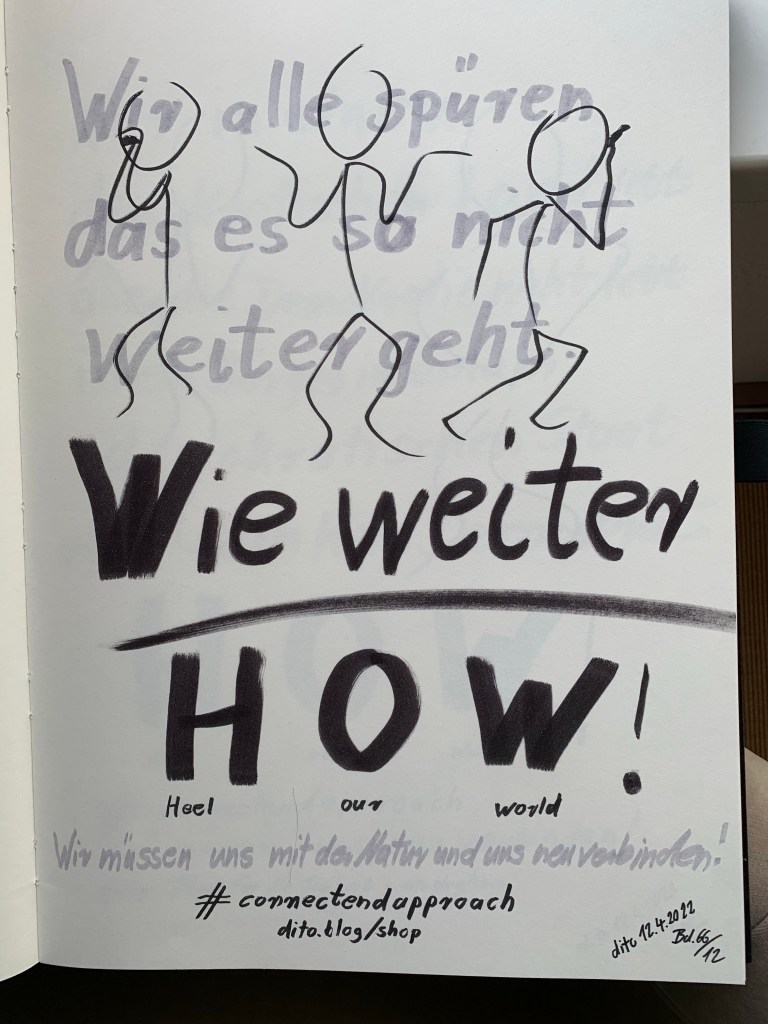 Wir alle spüren
das es so nicht
weiter geht.
Wie weiter
HOW!
Heel our world
Wir müssen uns mit der Natur und uns neu verbinden!
# connectendapproach
dito.blog/shop
dito 12.4.2022
Bd.66/12